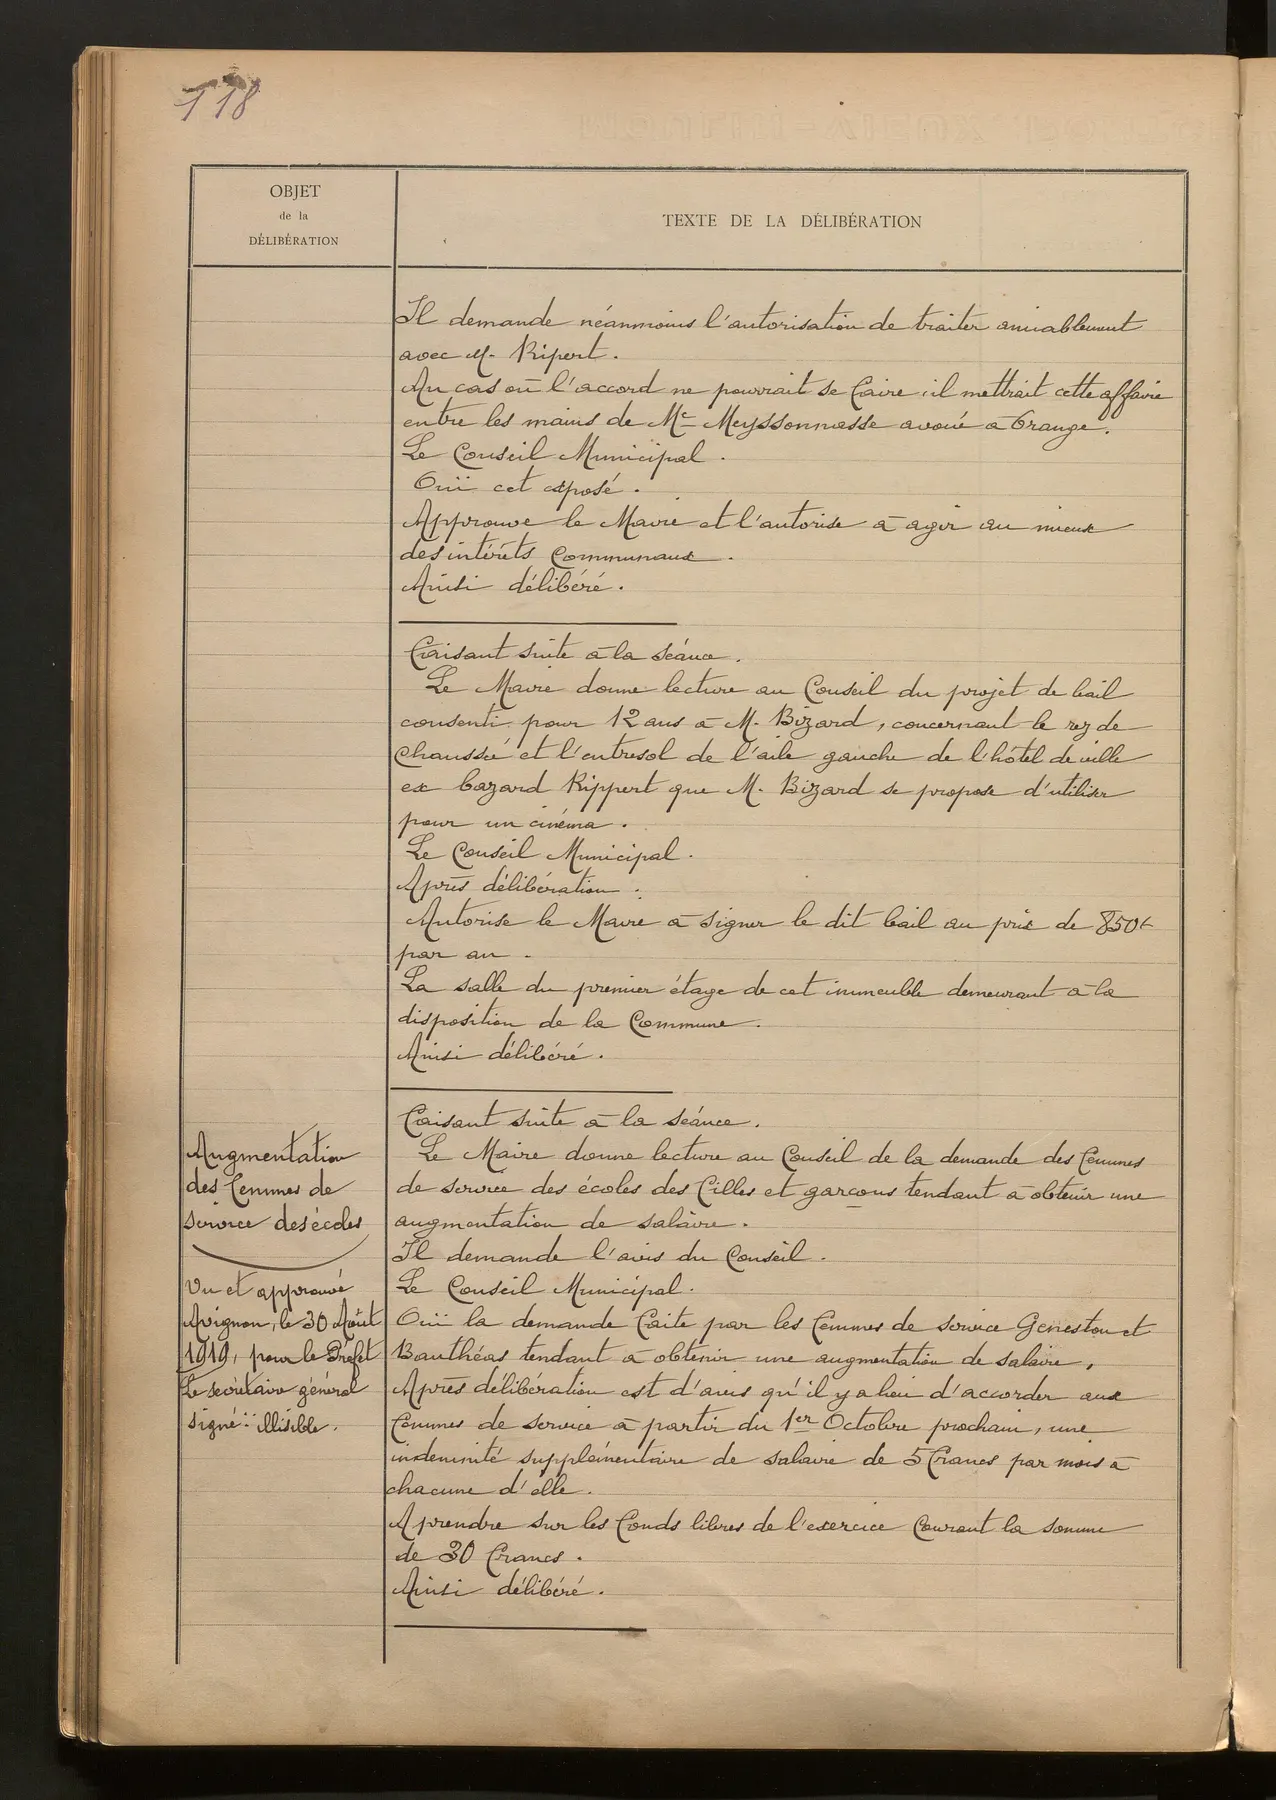 118
OBJET
de la
DÉLIBÉRATION
TEXTE DE LA DÉLIBÉRATION
Il demande néanmoins l'autorisation de traiter amiablement
avec M. Ripert.
Au cas où l'accord ne pourrait se faire, il mettrait cette affaire
entre les mains de Me Meyssonnasse avoué à Orange.
Le Conseil Municipal.
Ouï cet exposé.
Approuve le Maire et l'autorise à agir au mieux
des intérêts Communaux.
Ainsi délibéré.
Faisant suite à la séance.
Le Maire donne lecture au Conseil du projet de bail
consenti pour 12 ans à M. Bizard, concernant le rez de
chaussée et l'entresol de l'aile gauche de l'hôtel de ville
ex bazard Rippert que M. Bizard se propose d'utiliser
pour un cinéma.
Le Conseil Municipal.
Après délibération.
Autorise le Maire à signer le dit bail au prix de 850f
par an.
La salle du premier étage de cet immeuble demeurant à la
disposition de la Commune.
Ainsi délibéré.
Augmentation
des femmes de
service des écoles
Vu et approuvé
Avignon, le 30 Août
1919, pour le Préfet
Le secrétaire général
signé: illisible.
Faisant suite à la séance.
Le Maire donne lecture au Conseil de la demande des femmes
de service des écoles des filles et garçons tendant à obtenir une
augmentation de salaire.
Il demande l'avis du Conseil.
Le Conseil Municipal.
Ouï la demande faite par les femmes de service Geneston et
Bauthéas tendant à obtenir une augmentation de salaire,
Après délibération est d'avis qu'il y a lieu d'accorder aux
femmes de service à partir du 1er Octobre prochain, une
indemnité supplémentaire de salaire de 5 francs par mois à
chacune d'elle.
A prendre sur les fonds libres de l'exercice courant la somme
de 30 francs.
Ainsi délibéré.